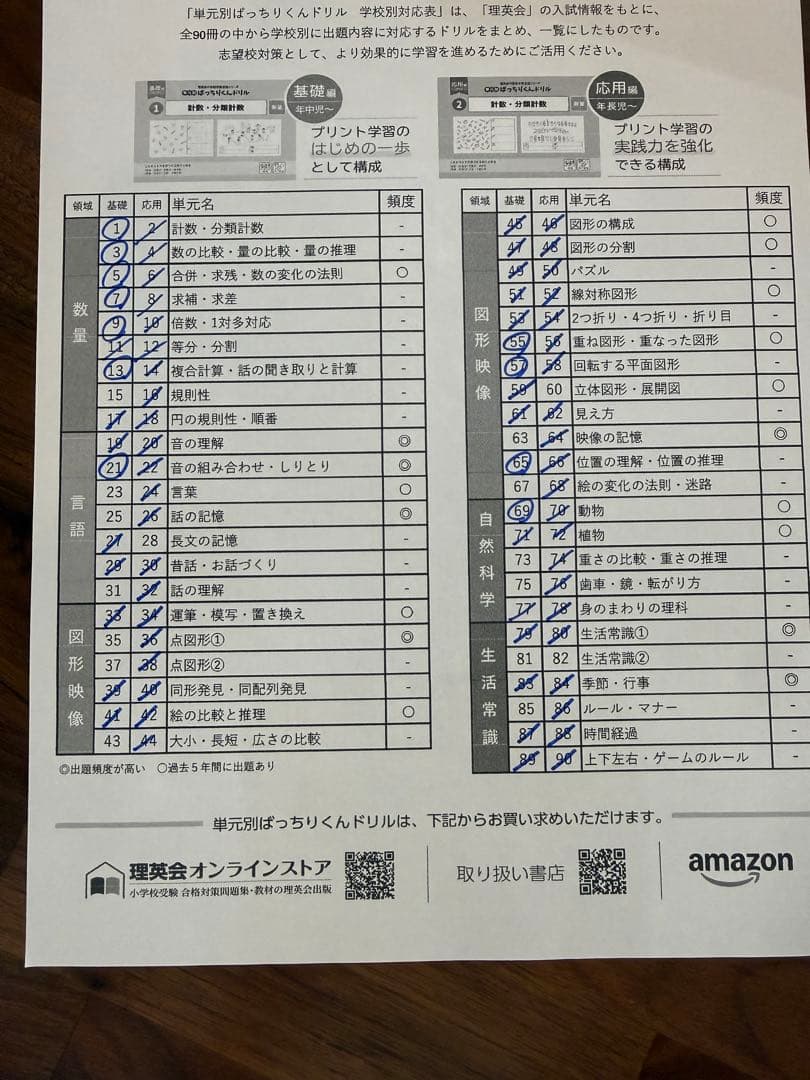 「単元別ばっちりくんドリル 学校別対応表」は、「理英会」の入試情報をもとに、
全90冊の中から学校別に出題内容に対応するドリルをまとめ、一覧にしたものです。
志望校対策として、より効果的に学習を進めるためにご活用ください。
基礎編
ばっちりくんドリル
1 計数・分類計数
基礎編
年中児〜
プリント学習の
はじめの一歩
として構成
応用編
ばっちりくんドリル
2 計数・分類計数
応用編
年長児〜
プリント学習の
実践力を強化
できる構成
領域 基礎 応用 単元名 頻度
数量
1 2 計数・分類計数 -
3 4 数の比較・量の比較・量の推理 -
5 6 合併・求残・数の変化の法則 〇
7 8 求補・求差 -
9 10 倍数・1対多対応 -
11 12 等分・分割 -
13 14 複合計算・話の聞き取りと計算 -
15 16 規則性 -
17 18 円の規則性・順番 -
言語
19 20 音の理解 ◎
21 22 音の組み合わせ・しりとり ◎
23 24 言葉 〇
25 26 話の記憶 ◎
27 28 長文の記憶 -
29 30 昔話・お話づくり -
31 32 話の理解 -
図形映像
33 34 運筆・模写・置き換え 〇
35 36 点図形① ◎
37 38 点図形② -
39 40 同形発見・同配列発見 -
41 42 絵の比較と推理 〇
43 44 大小・長短・広さの比較 -
◎出題頻度が高い 〇過去5年間に出題あり
領域 基礎 応用 単元名 頻度
図形映像
45 46 図形の構成 〇
47 48 図形の分割 〇
49 50 パズル -
51 52 線対称図形 〇
53 54 2つ折り・4つ折り・折り目 -
55 56 重ね図形・重なった図形 〇
57 58 回転する平面図形 -
59 60 立体図形・展開図 〇
61 62 見え方 -
63 64 映像の記憶 ◎
65 66 位置の理解・位置の推理 -
67 68 絵の変化の法則・迷路 -
自然科学
69 70 動物 〇
71 72 植物 〇
73 74 重さの比較・重さの推理 -
75 76 歯車・鏡・転がり方 -
77 78 身のまわりの理科 -
生活常識
79 80 生活常識① ◎
81 82 生活常識② -
83 84 季節・行事 ◎
85 86 ルール・マナー -
87 88 時間経過 -
89 90 上下左右・ゲームのルール -
単元別ばっちりくんドリルは、下記からお買い求めいただけます。
理英会オンラインストア
小学校受験 合格対策問題集・教材の理英会出版
取り扱い書店
amazon